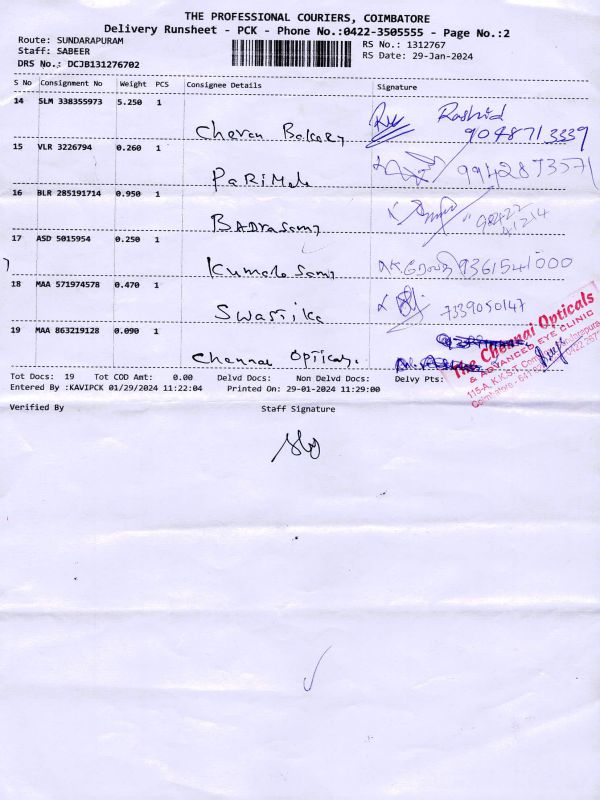 THE PROFESSIONAL COURIERS, COIMBATORE
Delivery Runsheet - PCK - Phone No.:0422-3505555 - Page No.:2
Route: SUNDARAPURAM
RS No.: 1312767
Staff: SABEER
RS Date: 29-Jan-2024
DRS No.: DCJB131276702
S No Consignment No Weight PCS Consignee Details Signature
14 SLM 338355973 5.250 1
Cheran Bakery Rashid
9048713339
15 VLR 3226794 0.260 1
PaRiMala 9942873571
16 BLR 285191714 0.950 1
BADraSamy
17 ASD 5015954 0.250 1
KumaraSamy 9361541000
18 MAA 571974578 0.470 1
SwaStika 7339050147
19 MAA 863219128 0.090 1
Chennai Opticals.
The Chennai Opticals
& ADVANCED EYE CLINIC
115-A, K.K.S.
Coimbatore
Tot Docs: 19 Tot COD Amt: 0.00 Delvd Docs: Non Delvd Docs: Delvy Pts:
Entered By :KAVIPCK 01/29/2024 11:22:04 Printed On: 29-01-2024 11:29:00
Verified By Staff Signature